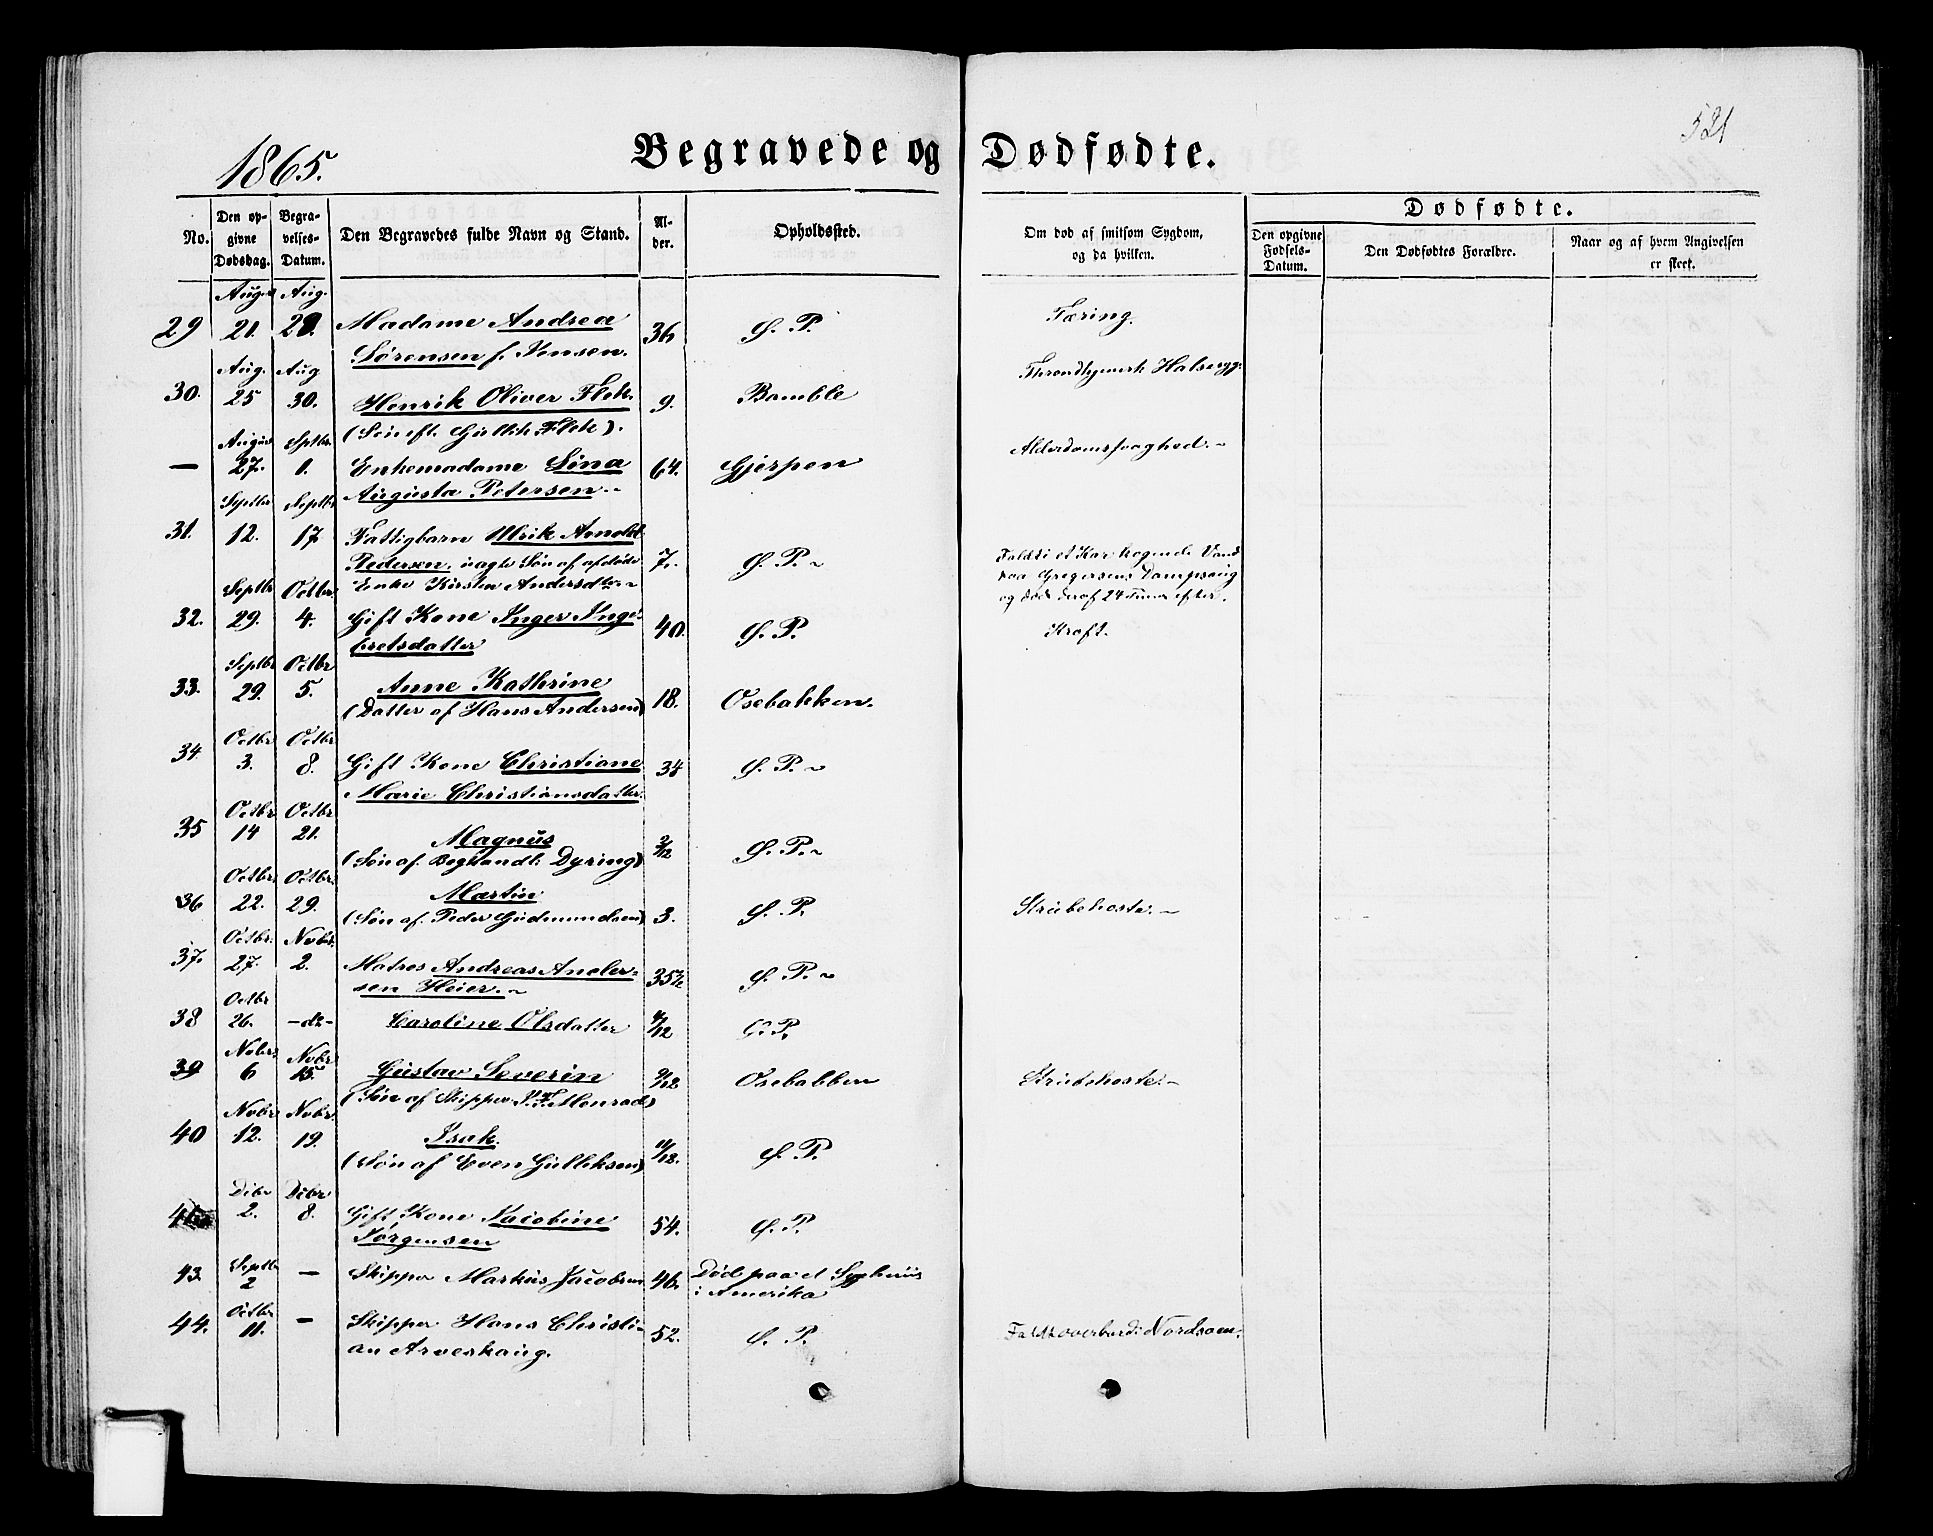 521
1865.
Begravede og Dødfødte.
No.
Den opgivne Dødsdag.
Begravelses-Datum.
Den Begravedes fulde Navn og Stand.
Alder.
Opholdssted.
Om død af smitsom Sygdom, og da hvilken.
Dødfødte.
Den opgivne Fødsels-Datum.
Den Dødfødtes Forældre.
Naar og af hvem Angivelsen er skeet.
Aug. Aug.
29 21. 28. Madame Andrea 36 Ø. P. Tæring.
Sørensen f. Jensen.
Aug. Aug
30. 25 30. Henrik Oliver Flek. 9. Bamble Throndhjemsk Halssyge
(Søn af Gullik Flek).
August Septbr
— 27. 1. Enkemadame Lina 64. Gjerpen Alderdomssvaghed.
Augusta Petersen
Septbr Septbr
31. 12. 17 Fattigbarn Ulrik Arnoldt 7. Ø. P. Faldt i et Kar kogende Vand
Pedersen, uægte Søn af afdøde paa Gregersens Dampsaug
Enke Kirsten Andersdtr. og døde deraf 24 Timer efter.
Septbr Octbr
32. 29. 4. Gift Kone Inger Inge- 40. Ø. P. Kræft.
bretsdatter
Septbr Octbr
33. 29. 5. Anne Kathrine 18. Osebakken.
(Datter af Hans Andersen)
Octbr Octbr
34. 3. 8. Gift Kone Christiane 34 Ø. P.
Marie Christiansdatter.
Octbr Octbr
35 14 21. Magnus 2/12 Ø. P.
(Søn af Boghandl. Dyring)
Octbr Octbr.
36 22. 29. Martin 3. Ø. P. Strubehoste.
(Søn af Peder Gudmundsen)
Octbr. Novbr.
37. 27. 2. Matros Andreas Ander- 35½ Ø. P.
sen Heier.
Octbr
38 26. -do- Caroline Olsdatter 4/12 Ø. P.
Novbr. Novbr
39 6 15. Gustav Severin 9/12 Osebakken Strubehoste.
(Søn af Skipper Monrad)
Novbr Novbr.
40 12. 19. Isak. 11/12. Ø. P.
(Søn af Even Gulliksen)
Dcbr Dcbr
2. 8. Gift Kone Jacobine 54. Ø. P.
Jørgensen
Septbr
43. 2 — Skipper Markus Jacobsen 46. Død paa et Sygehuus
i Amerika
Octbr
44. 11. — Skipper Hans Christi- 52. Ø. P. Faldt overbord i Nordsøen.
an Arveskaug.